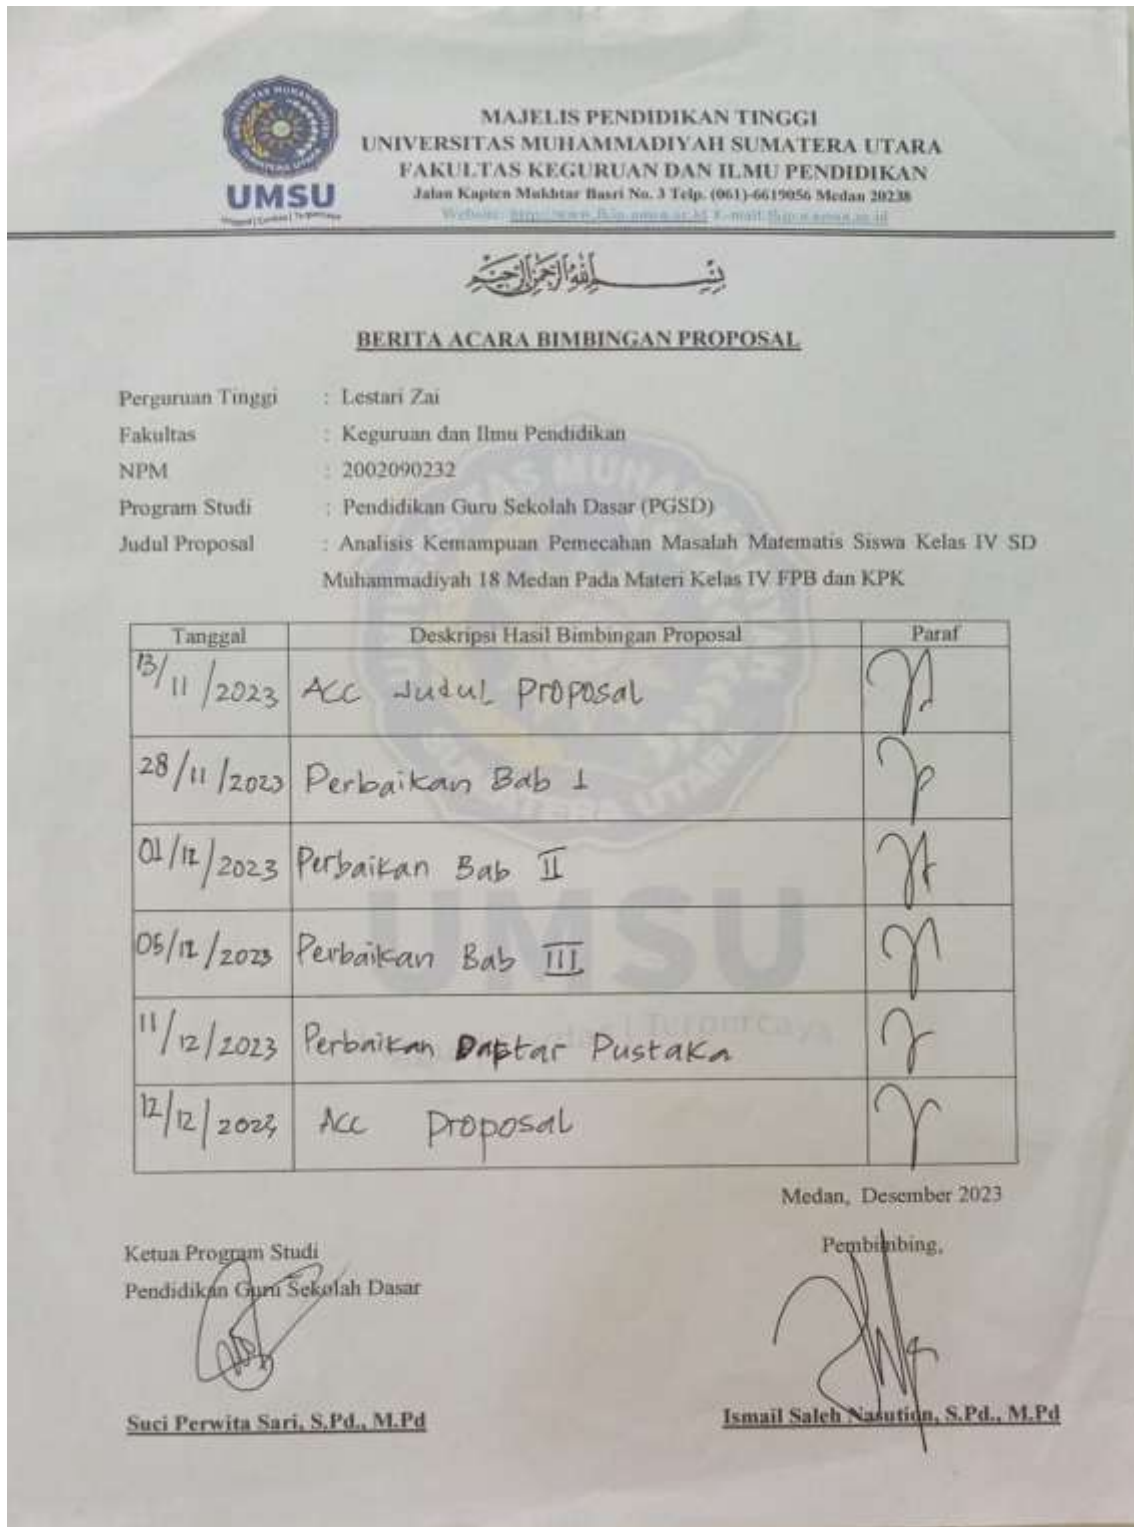 UMSU
Unggul | Cerdas | Terpercaya
MAJELIS PENDIDIKAN TINGGI
UNIVERSITAS MUHAMMADIYAH SUMATERA UTARA
FAKULTAS KEGURUAN DAN ILMU PENDIDIKAN
Jalan Kapten Mukhtar Basri No. 3 Telp. (061)-6619056 Medan 20238
Website: http://www.fkip.umsu.ac.id E-mail: fkip@umsu.ac.id
بِسْمِ اللَّهِ الرَّحْمَنِ الرَّحِيمِ
BERITA ACARA BIMBINGAN PROPOSAL
Perguruan Tinggi : Lestari Zai
Fakultas : Keguruan dan Ilmu Pendidikan
NPM : 2002090232
Program Studi : Pendidikan Guru Sekolah Dasar (PGSD)
Judul Proposal : Analisis Kemampuan Pemecahan Masalah Matematis Siswa Kelas IV SD
Muhammadiyah 18 Medan Pada Materi Kelas IV FPB dan KPK
Tanggal Deskripsi Hasil Bimbingan Proposal Paraf
13/11/2023 Acc Judul Proposal
28/11/2023 Perbaikan Bab I
01/12/2023 Perbaikan Bab II
05/12/2023 Perbaikan Bab III
11/12/2023 Perbaikan Daptar Pustaka
12/12/2023 Acc Proposal
Medan, Desember 2023
Ketua Program Studi
Pendidikan Guru Sekolah Dasar
Pembimbing,
Suci Perwita Sari, S.Pd., M.Pd
Ismail Saleh Nasution, S.Pd., M.Pd